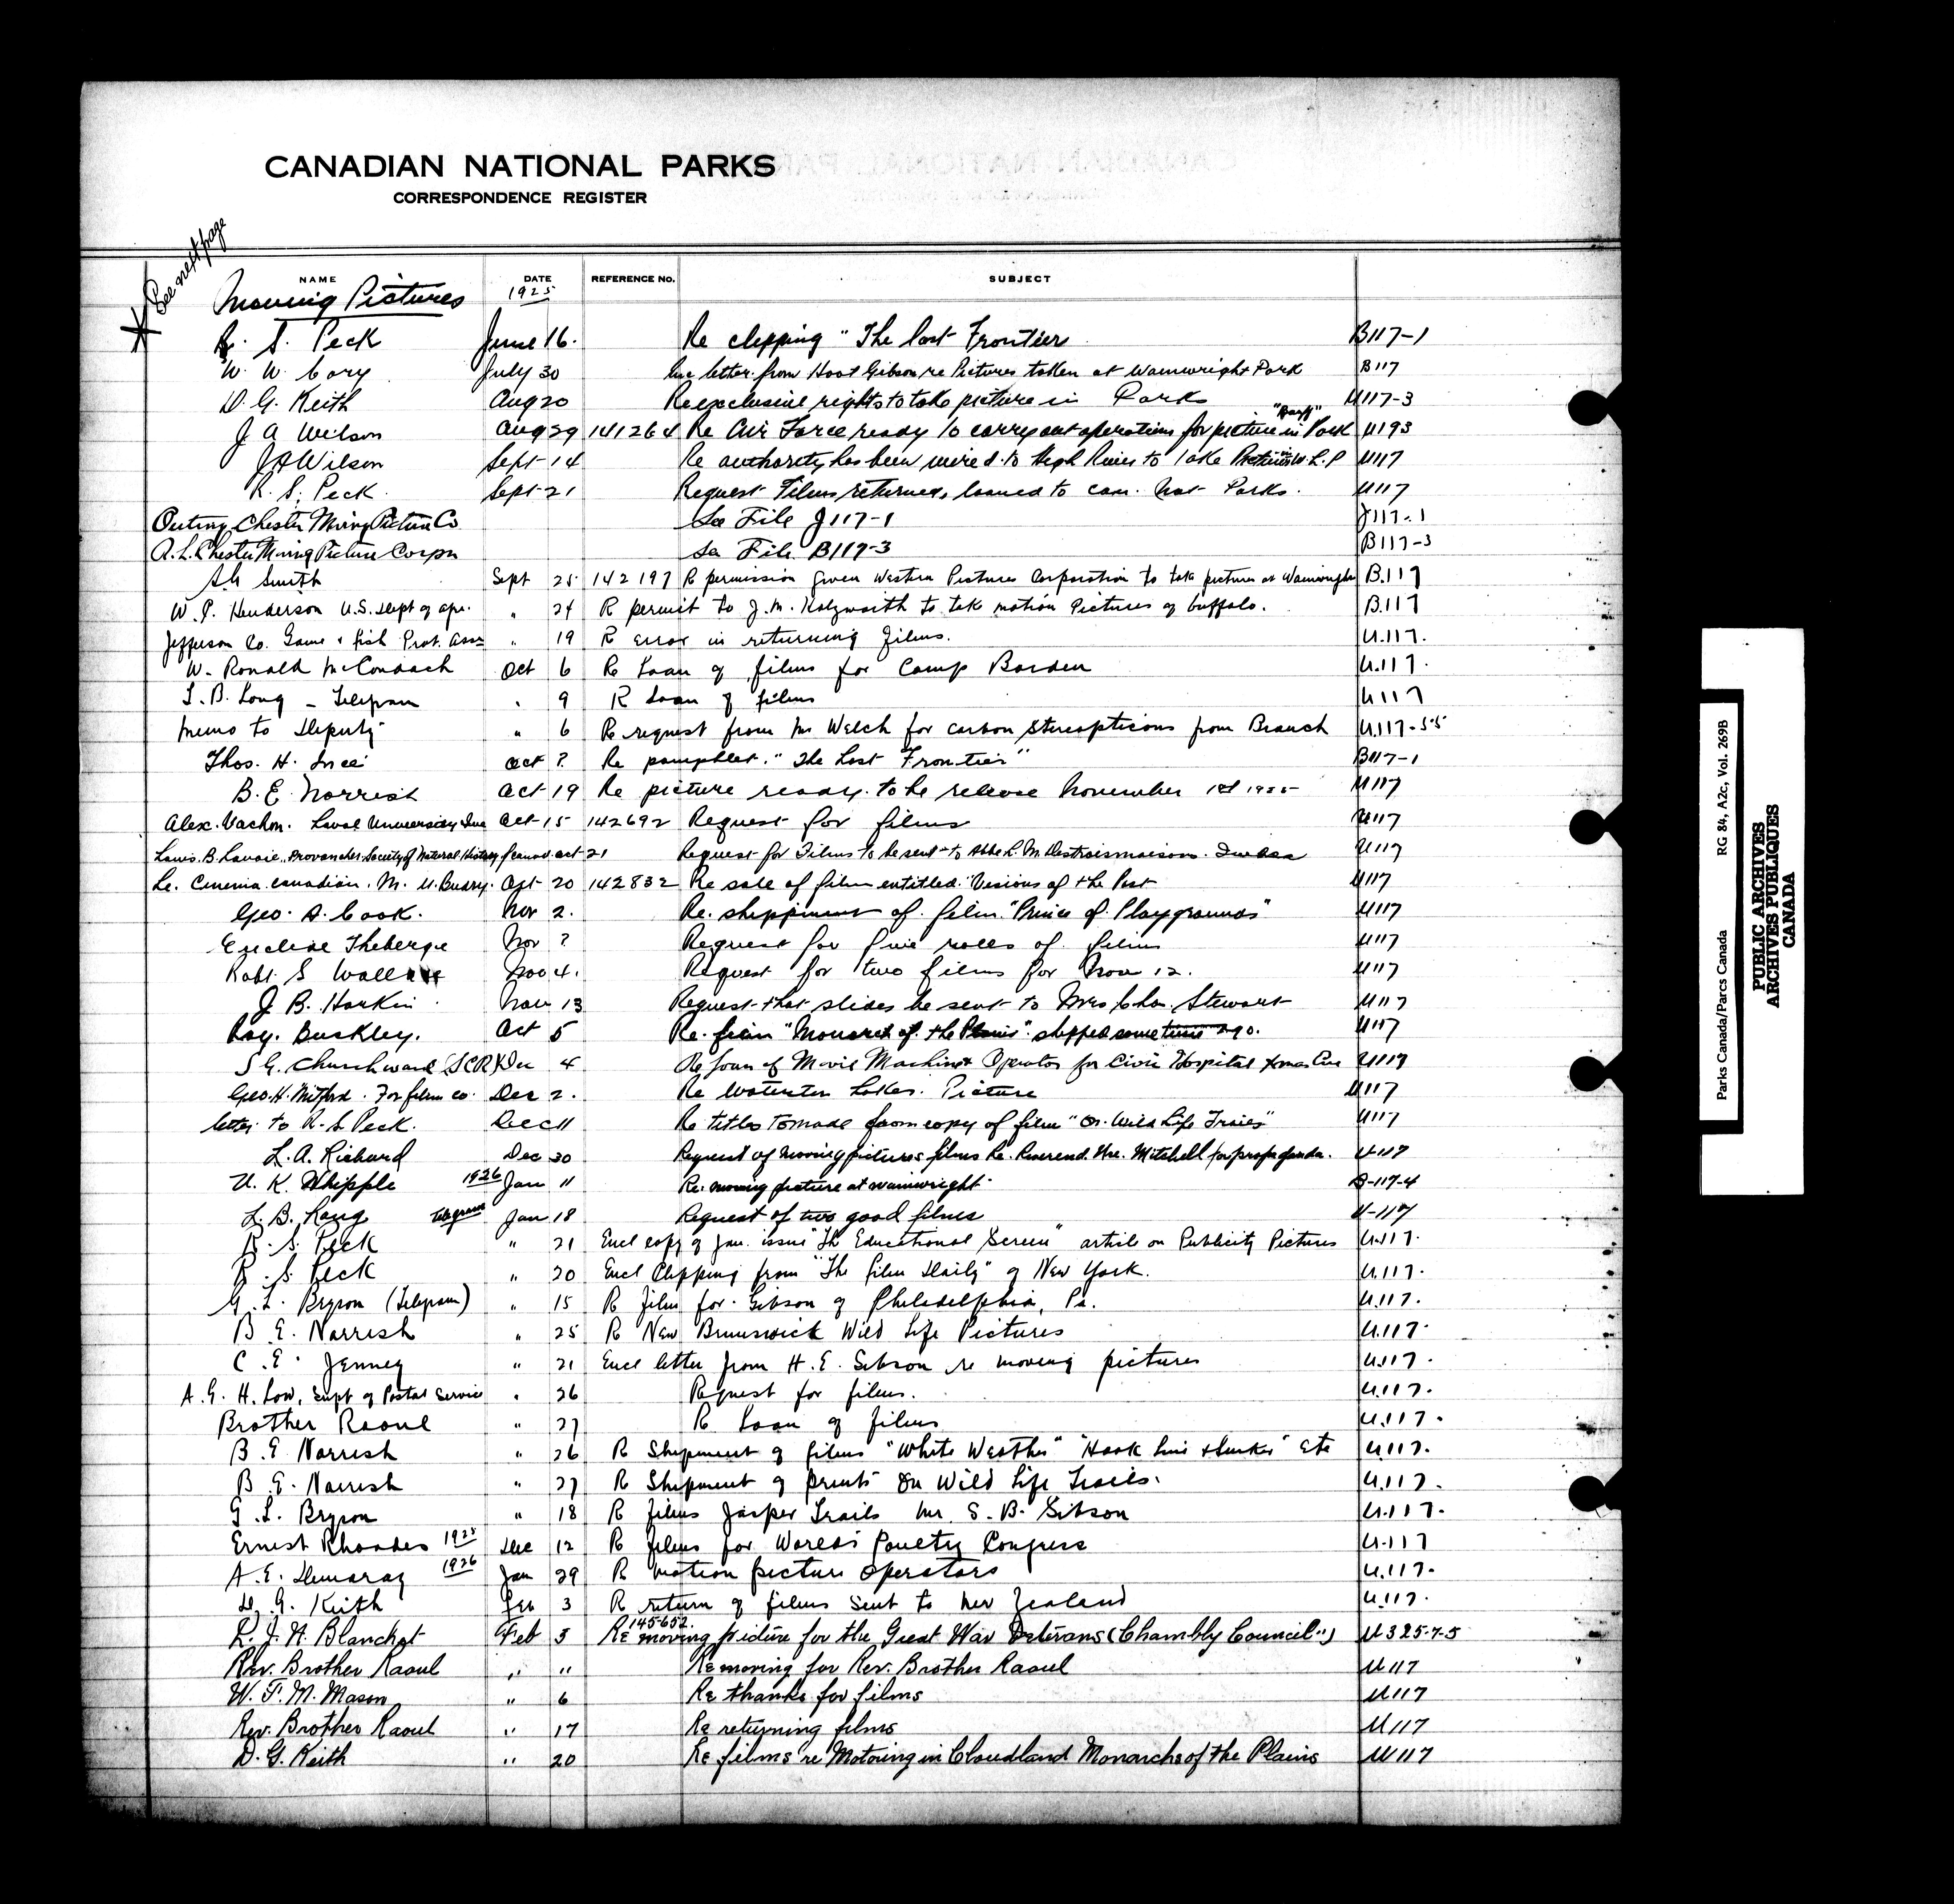 CANADIAN NATIONAL PARKS
CORRESPONDENCE REGISTER
See next page
NAME DATE REFERENCE No. SUBJECT
Moving Pictures 1925
R. S. Peck June 16. Re clipping "The Last Frontier B117-1
W. W. Cory July 30 Enc letter from Hoot Gibson re Pictures taken at Wainwright Park B117
D. G. Keith Aug 20 Re exclusive rights to take picture in Parks U117-3
J A Wilson Aug 29 141264 Re Air Force ready to carry out operations for picture in "Banff" Park U193
J A Wilson Sept 14 Re authority has been wired to High River to take Pictures in W.L.P U117
R. S. Peck Sept 21 Request Films returned, loaned to Can. Nat Parks. U117
Outing Chester Moving Picture Co See File J117-1 J117-1
C. L. Chester Moving Picture Corpn See File B117-3 B117-3
Smith Sept 25 142197 R permission given Western Pictures Corporation to take pictures at Wainwright B.117
W. P. Henderson U.S. Dept of Agr. " 24 R permit to J. M. Holzworth to take motion Pictures of buffalo. B.117
Jefferson Co. Game & Fish Prot. Assn " 19 R Error in returning films. U.117.
W. Ronald McCondach Oct 6 R Loan of films for Camp Borden U.117.
L. B. Long - Telegram " 9 R Loan of films U117
Memo to Deputy " 6 R request from Mr Welch for carbon Stereopticons from Branch U.117-55
Thos. H. Ince Oct ? Re pamphlet. "The Lost Frontier" B117-1
B. E. Norrish Oct 19 Re picture ready to be release November 1st 1925 U117
Alex. Vachon. Laval University Que Oct 15 142692 Request for films U117
Louis. B. Lavoie, Provancher Society of Natural History Canada Oct 21 Request for Films to be sent to Abbe L. M. Destroismaisons. U117
Le. Cinema Canadian. M. U. Oct 20 142832 Re sale of film entitled "Visions of the Past U117
Geo. A. Cook. Nov 2. Re. shippment of film "Prince of Playgrounds" U117
Theberge Nov ? Request for five rolls of films U117
Robt. S Wallace Nov 4. Request for two films for Nov 12. U117
J. B. Harkin Nov 13 Request that slides be sent to Mrs Chas. Stewart U117
Ray. Buckley. Oct 5 Re. film "Monarch of the Plains" shipped some time ago. U117
S G. Churchward (SCR) Dec 4 Re loan of Movie Machine & Operator for Civic Hospital Xmas Eve U117
Geo. H. Mitford. Fox film co. Dec 2. Re Waterton Lakes. Picture U117
letter to R. S. Peck. Dec 11 Re titles to made from copy of film "On Wild Life Trails" U117
L. A. Richard Dec 30 Request of moving pictures films Re. Reverend. Mitchell for propaganda. U-117
U. K. Whipple 1926 Jan 11 Re: moving picture at Wainwright. B-117-4
L. B. Long telegram Jan 18 Request of two good films U-117
R. S. Peck " 21 Encl copy of Jan. issue "The Educational Screen" article on Publicity Pictures U.117.
R. S. Peck " 20 Encl Clipping from "The Film Daily" of New York. U.117.
G. L. Bryson (Telegram) " 15 R Films for Gibson of Philadelphia, Pa. U.117.
B. E. Norrish " 25 R New Brunswick Wild Life Pictures U.117.
C. E. Jenney " 21 Encl letter from H. E. Gibson re moving pictures U.117.
A. G. H. Low, Supt of Postal Service " 26 Request for films. U.117.
Brother Raoul " 27 R Loan of films U.117.
B. E. Norrish " 26 R Shipment of films "White Weather" "Hook Line & Sinker" Etc U.117.
B. E. Norrish " 27 R Shipment of prints On Wild Life Trails. U.117.
G. L. Bryson " 18 R films Jasper Trails Mr. S. B. Gibson U.117.
Ernest Rhoades 1925 Dec 12 R films for World's Poultry Congress U.117
A. E. Demaray 1926 Jan 29 R motion picture operators U.117.
D. G. Keith Feb 3 R return of films sent to New Zealand U.117.
L. J. N. Blanchet Feb 5 145652. Re moving picture for the Great War Veterans (Chambly Council") U325-7-5
Rev. Brother Raoul " " Re moving for Rev. Brother Raoul U117
W. T. M. Mason " 6 Re thanks for films U117
Rev. Brother Raoul " 17 Re returning films U117
D. G. Keith " 20 Re films re Motoring in Cloudland Monarchs of the Plains U117
Parks Canada/Parcs Canada RG 84, A2c, Vol. 269B
PUBLIC ARCHIVES
ARCHIVES PUBLIQUES
CANADA